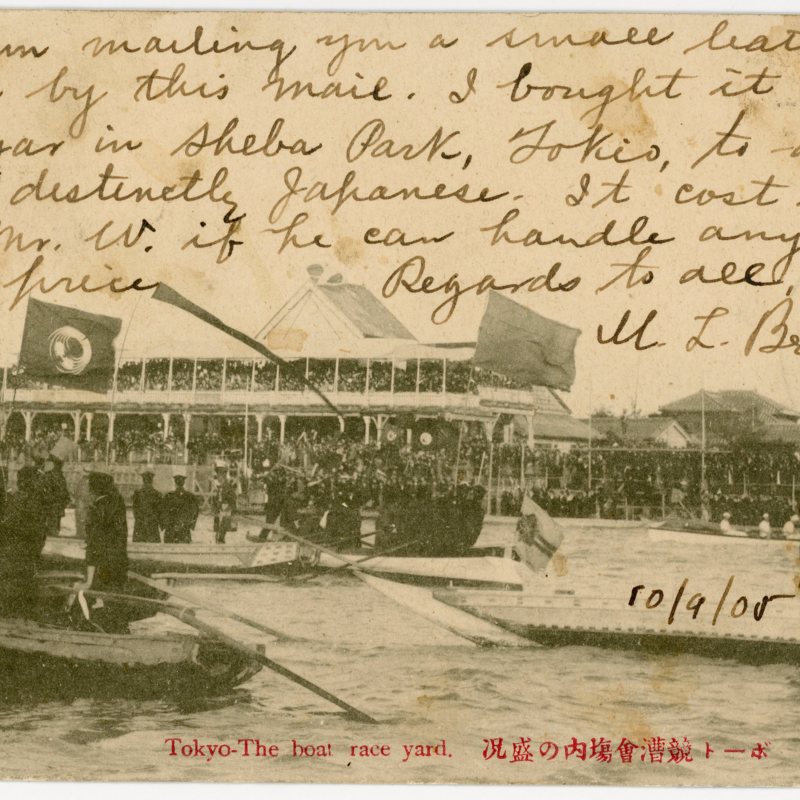 mailing you a small leat
by this mail. I bought it
in Sheba Park, Tokio, to
distinctly Japanese. It cost
Mr. W. if he can handle any
price Regards to all,
M. L. Be
10/9/05
Tokyo-The boat race yard. ボート競漕會塲内の盛况